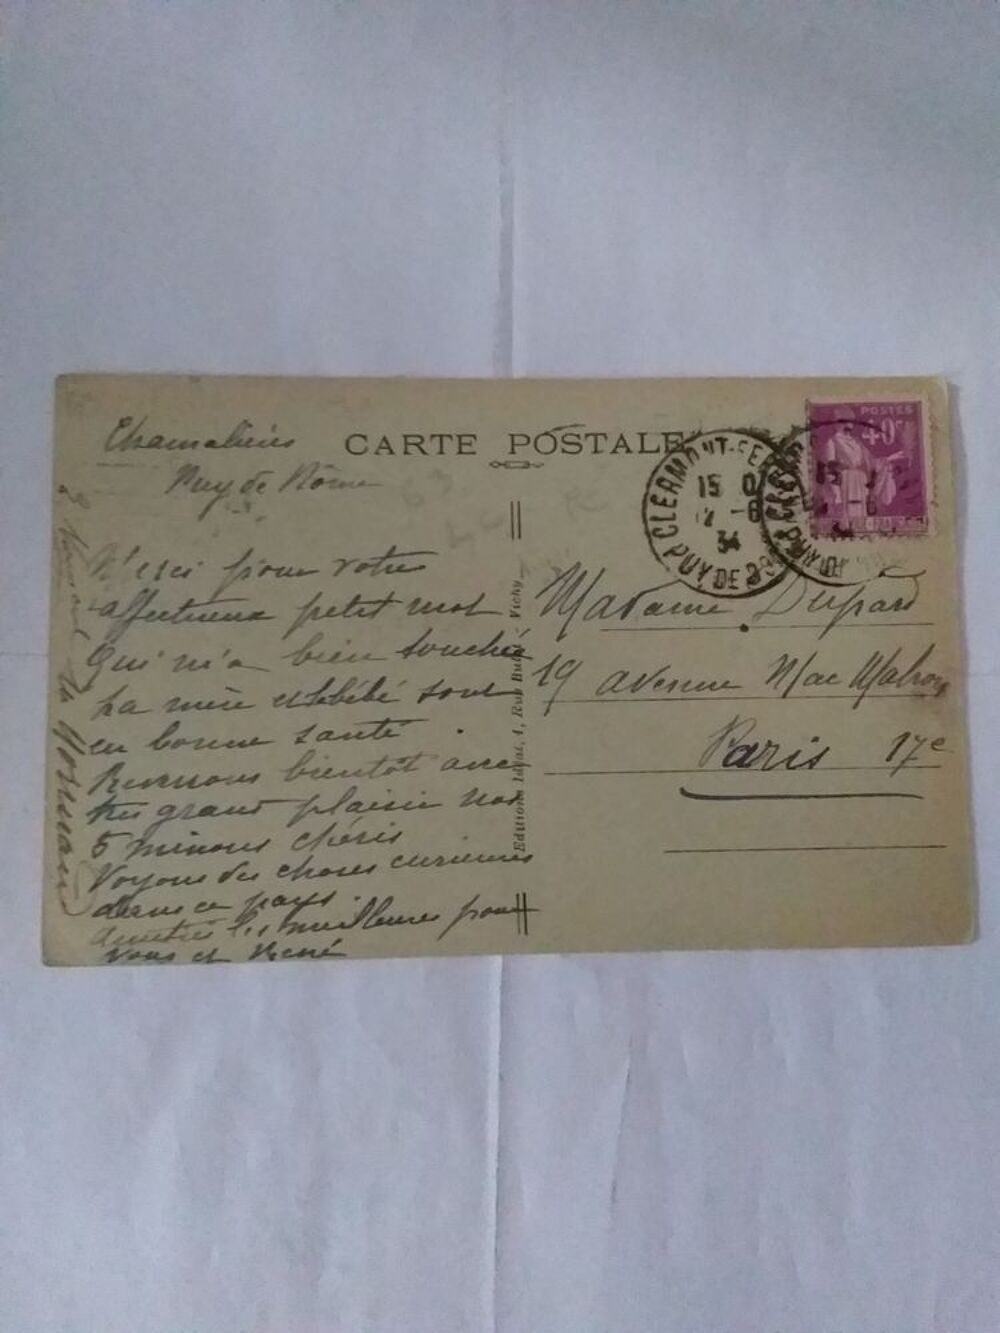 Chamalières
Puy de Dôme
CARTE POSTALE
POSTES
40c
CLERMONT-FE
15
12 -6
34
PUY DE DOME
Merci pour votre
affectueux petit mot
qui m'a bien touchée
La mère et bébé sont
en bonne santé.
Reverrons bientôt avec
très grand plaisir nos
5 minous chéris
Voyons des choses curieuses
dans ce pays
Amitiés les meilleures pour
vous et René
Editions Idéal, 1, Rue Vichy
Madame Dupard
19 avenue Mac Mahon
Paris 17e